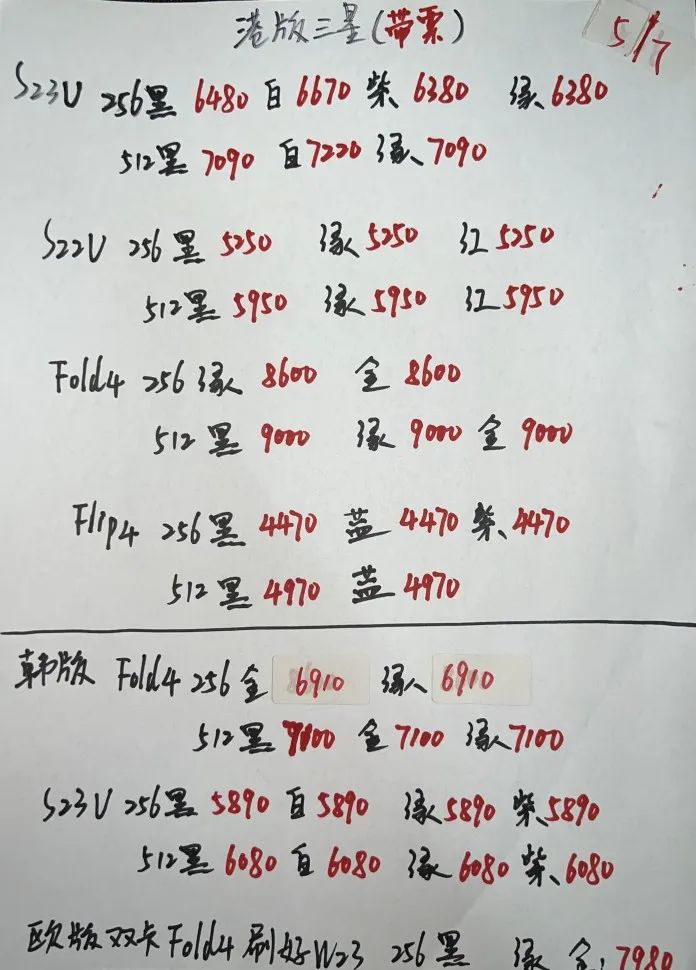 港版三星(带票) 5/7
S23U 256黑 6480 白 6670 紫 6380 绿 6380
512黑 7090 白 7220 绿 7090
S22U 256黑 5250 绿 5250 红 5250
512黑 5950 绿 5950 红 5950
Fold4 256 绿 8600 金 8600
512 黑 9000 绿 9000 金 9000
Flip4 256黑 4470 蓝 4470 紫 4470
512黑 4970 蓝 4970
韩版 Fold4 256金 6910 绿 6910
512黑 7100 金 7100 绿 7100
S23U 256黑 5890 白 5890 绿 5890 紫 5890
512黑 6080 白 6080 绿 6080 紫 6080
欧版双卡 Fold4 刷好 W23 256 黑 绿 金: 7980